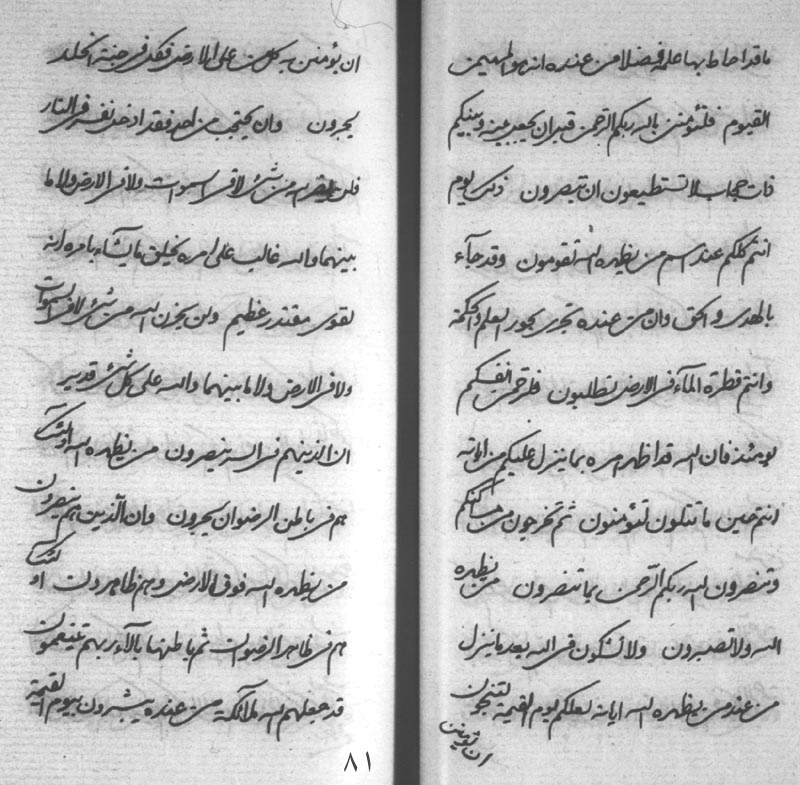 ما قد احاط بها علمه فضلا من عنده انه هو المهيمن
القيوم فلتؤمنن بالله ربكم الرحمن قبل ان يحجب بينه وبينكم
ذات حجاب لا تستطيعون ان تبصرون ذلك يوم
انتم كلكم عند اسم من يظهره الله تقومون وقد جاء
بالهدى والحق وان من عنده تجرى بحور العلم والحكمة
وانتم قطرة الماء فى الارض تطلبون فلترحمن انفسكم
يومئذ فان الله قد اظهر امره بما ينزل عليكم من اياته
انتم حين ما تتلون لتؤمنون ثم تخرجون من مساكنكم
وتنصرون الله ربكم الرحمن بما تنصرون من يظهره
الله ولا تصبرون ولا تشكون فى الله بعد ما ينزل
من عند من يظهره الله اياته لعلكم يوم القيمة لتنجون
ان يؤمنن به كل من على الارض فكل فى جنة الخلد
يحبرون وان يحتجب من احد فقد ادخل نفسه فى النار
فلن من شىء لا فى السموات ولا فى الارض ولا ما
بينهما والله غالب على امره يخلق ما يشاء بامره انه
لقوى مقتدر عظيم ولن يعزب الله من شىء لا فى السموات
ولا فى الارض ولا ما بينهما والله على كل شىء قدير
ان الذينهم فى السر ينصرون من يظهره الله اولئك
هم فى باطن الرضوان يحبرون وان الذين هم ينصرون
من يظهره الله فوق الارض وهم ظاهرون اولئك
هم فى ظاهر الرضوان ثم باطنها بالاء ربهم يتنعمون
قد جعلهم الله ملائكة من عنده يبشرون بيوم القيمة
٨١